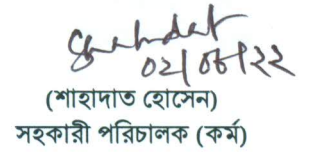 Shahdat
০২/০৬/২২
(শাহাদাত হোসেন)
সহকারী পরিচালক (কর্ম)